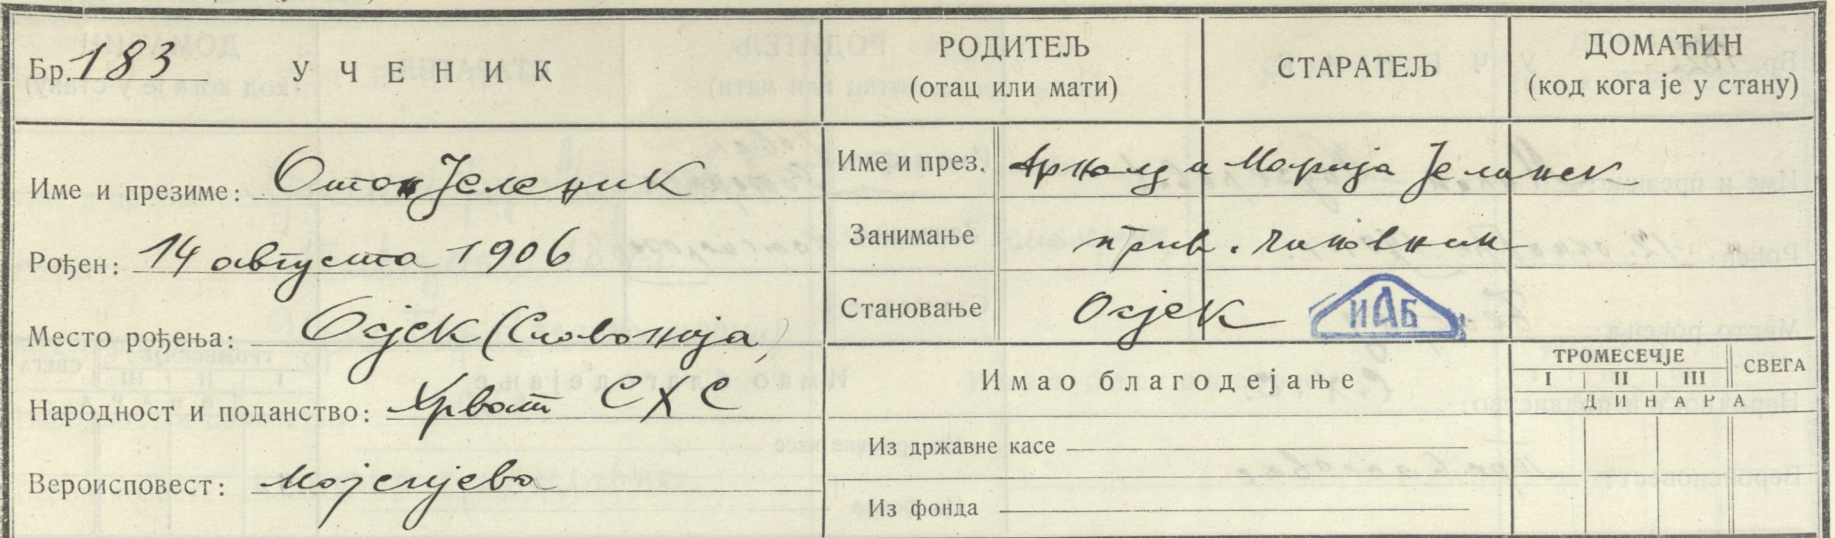 Бр. 183 УЧЕНИК
РОДИТЕЉ
(отац или мати)
СТАРАТЕЉ
ДОМАЋИН
(код кога је у стану)
Име и презиме: Отон Јеленик
Рођен: 14 августа 1906
Место рођења: Осјек (Словонија)
Народност и поданство: Хрват СХС
Вероисповест: Мојсијева
Име и през. и Марија
Занимање прив. чиновник
Становање Осјек
ИАБ
Имао благодејање
ТРОМЕСЕЧЈЕ СВЕГА
I II III
ДИНАРА
Из државне касе
Из фонда